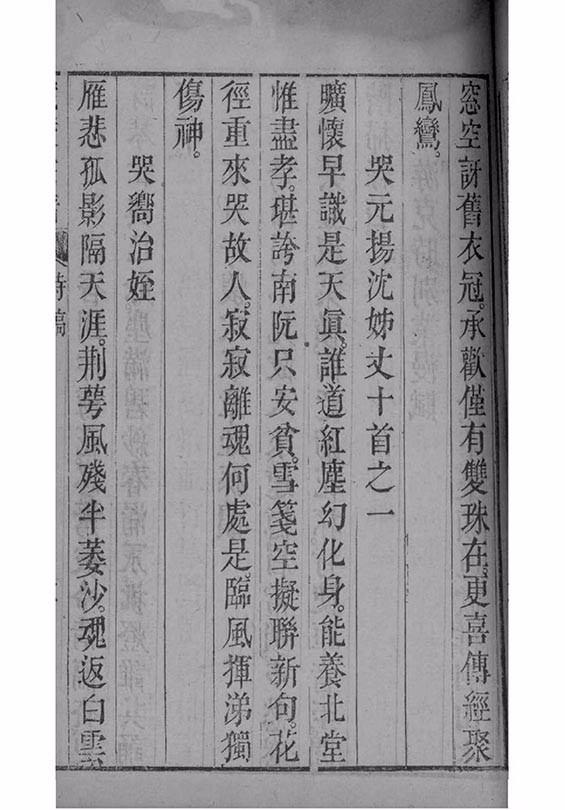 窓空訝舊衣冠。承歡僅有雙珠在。更喜傳經聚
鳳鸞。
哭元揚沈姊丈十首之一
曠懷早識是天眞。誰道紅塵幻化身。能養北堂
惟盡孝。堪誇南阮只安貧。雪箋空擬聯新句。花
徑重來哭故人。寂寂離魂何處是。臨風揮涕獨
傷神。
哭嚮治姪
雁悲孤影隔天涯。荆萼風殘半萎沙。魂返白雲
詩稿